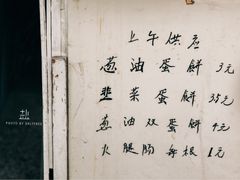 上午供应
葱油蛋餅 3元
韭菜蛋餅 3.5元
葱油双蛋餅 4元
火腿肠每根1元
PHOTO BY SALTTREE